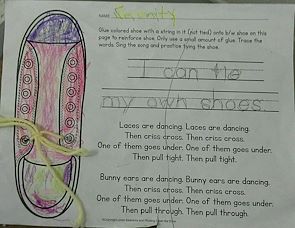 NAME
Glue colored shoe with a string in it (not tied) onto b/w shoe on this
page to reinforce shoe. Only use a small amount of glue. Trace the
words. Sing the song and practice tying the shoe.
I
can tie
my own shoes.
Laces are dancing. Laces are dancing.
Then criss cross. Then criss cross.
One of them goes under. One of them goes under.
Then pull tight. Then pull tight.
Bunny ears are dancing. Bunny ears are dancing.
Then criss cross. Then criss cross.
One of them goes under. One of them goes under.
Then pull through. Then pull through.